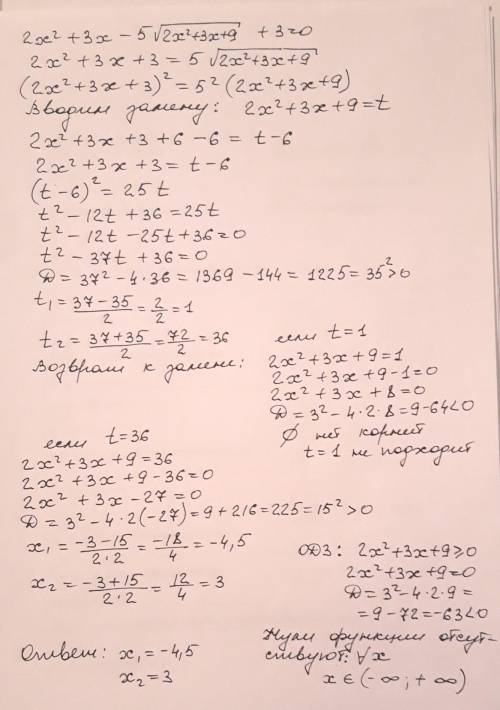 2x² + 3x - 5√(2x²+3x+9) + 3=0
2x² + 3x + 3 = 5√(2x²+3x+9)
(2x²+3x+3)² = 5²(2x²+3x+9)
Вводим замену: 2x²+3x+9=t
2x² +3x +3+6-6 = t-6
2x² +3x+3= t-6
(t-6)² = 25t
t² -12t +36 =25t
t² -12t -25t+36=0
t² -37t +36=0
Д = 37² - 4·36 = 1369 -144 = 1225 = 35²>0
t₁ = (37-35)/2 = 2/2 = 1
t₂ = (37+35)/2 = 72/2 = 36
Возврат к замене:
если t=1
2x²+3x+9=1
2x²+3x+9-1=0
2x²+3x+8=0
Д = 3²-4·2·8=9-64<0
∅ нет корней
t=1 не подходит
если t=36
2x²+3x+9=36
2x² +3x +9-36=0
2x² +3x-27=0
Д = 3² -4·2(-27)=9+216=225=15²>0
x₁ = (-3-15)/(2·2) = -18/4 = -4,5
x₂ = (-3+15)/(2·2) = 12/4 = 3
Ответ: x₁ = -4,5
x₂ = 3
ОДЗ: 2x²+3x+9≥0
2x²+3x+9=0
Д = 3²-4·2·9 =
= 9-72=-63<0
Нули функции отсут-
ствуют: ∀x
x∈(-∞;+∞)